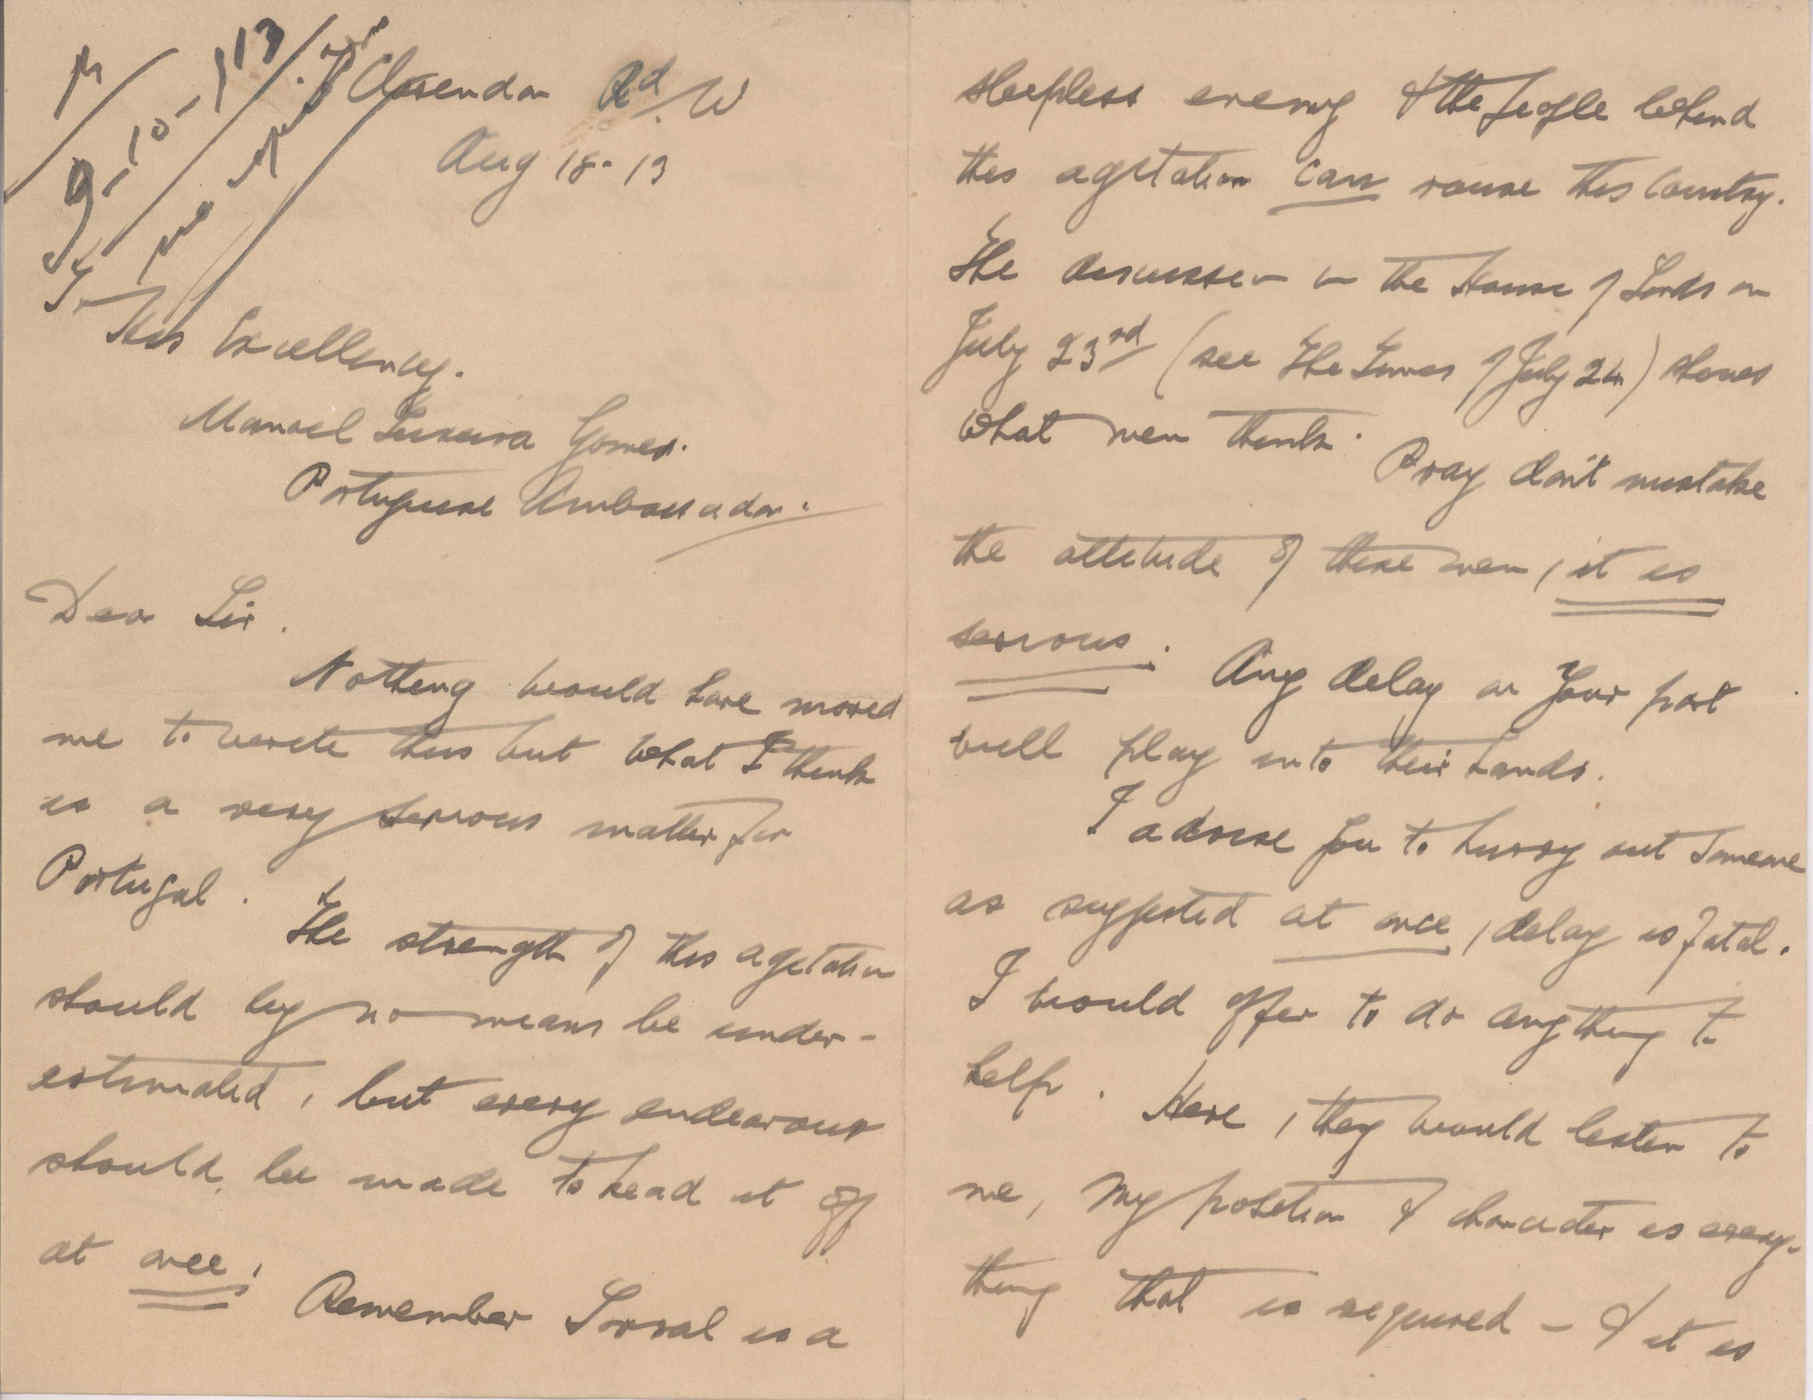 Clarendon Rd. W
Aug 18-13
His Excellency.
Manoel Teixeira Gomes.
Portuguese Ambassador.
Dear Sir.
Nothing would have moved
me to write this but what I think
is a very serious matter for
Portugal. The strength of this agitation
should by no means be under-
estimated, but every endeavour
should be made to head it off
at once. Remember Sorval is a
sleepless enemy & the people behind
this agitation can rouse this Country.
The discussion in the House of Lords on
July 23rd (see The Times of July 24) shows
what men think. Pray don't mistake
the attitude of these men, it is
serious. Any delay on your part
will play into their hands.
I advise you to hurry out someone
as suggested at once, delay is fatal.
I would offer to do anything to
help. Here, they would listen to
me, my position & character is every-
thing that is required - & it is